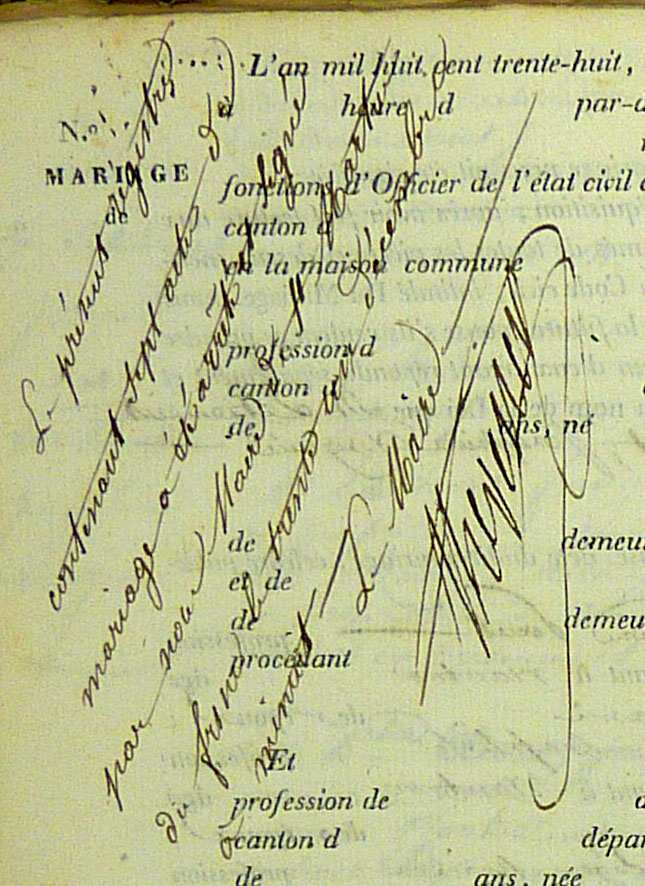 L'an mil huit cent trente-huit,
d heure d par-d
N.º
MARIAGE
fonctions d'Officier de l'état civil d
de
canton d
en la maison commune
profession d
canton d
de ans, né
de demeu
et de
de demeu
procédant
Et
profession de d
canton d dépar
de ans, née
Le présent registre
contenant sept actes de
mariage a été arrêté et signé
par nous Maire de St Martin
du le trente un décembre
à minuit — Le Maire